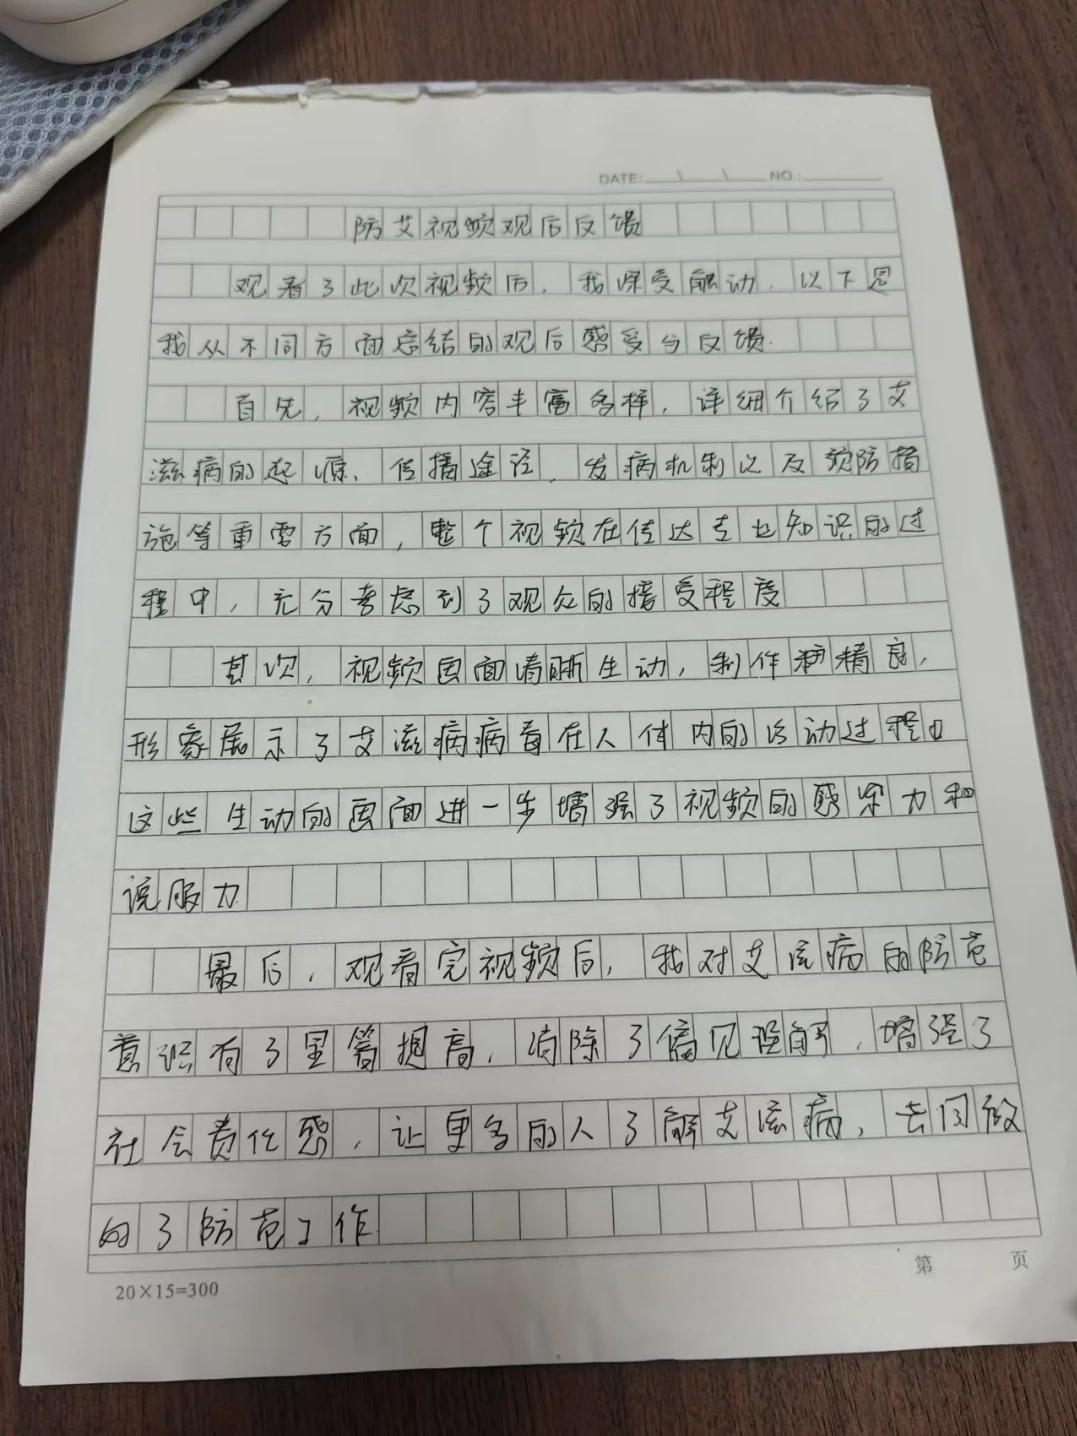 DATE: \ \ NO.:
防艾视频观后反馈
观看了此次视频后，我深受触动，以下是
我从不同方面总结的观后感受与反馈.
首先，视频内容丰富多样，详细介绍了艾
滋病的起源、传播途径、发病机制以及预防措
施等重要方面，整个视频在传达专业知识的过
程中，充分考虑到了观众的接受程度
其次，视频画面清晰生动，制作精良，
形象展示了艾滋病病毒在人体内的活动过程
这些生动的画面进一步增强了视频的感染力和
说服力
最后，观看完视频后，我对艾滋病的防范
意识有了显著提高，消除了偏见误解，增强了
社会责任感，让更多的人了解艾滋病，去同做
的了防范工作
20×15=300
第 页